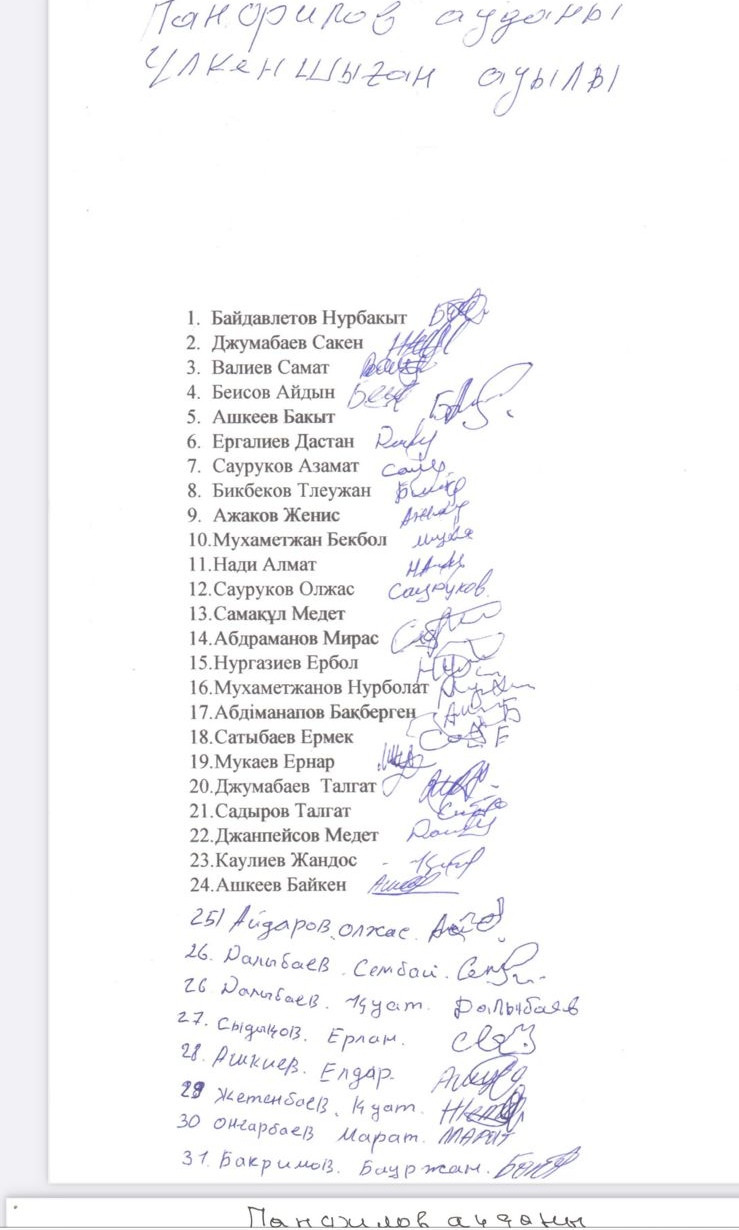 Панфилов ауданы
Үлкеншыған ауылы
1. Байдавлетов Нурбакыт
2. Джумабаев Сакен
3. Валиев Самат
4. Беисов Айдын
5. Ашкеев Бакыт
6. Ергалиев Дастан
7. Сауруков Азамат
8. Бикбеков Тлеужан
9. Ажаков Женис
10.Мухаметжан Бекбол
11.Нади Алмат
12.Сауруков Олжас Сауруков
13.Самақұл Медет
14.Абдраманов Мирас
15.Нургазиев Ербол
16.Мухаметжанов Нурболат
17.Абдіманапов Бақберген
18.Сатыбаев Ермек
19.Мукаев Ернар
20.Джумабаев Талгат
21.Садыров Талгат
22.Джанпейсов Медет
23.Каулиев Жандос
24.Ашкеев Байкен
25) Айдаров Олжас.
26. Далыбаев. Сембай.
26 Далыбаев. Қуат. Далыбаев
27. Сыдықов. Ерлан.
28. Ашкиев. Елдар.
29 Жетенбаев. Қуат.
30 Онгарбаев Марат. МАРАТ
31. Бакримов. Бауржан.
Панфилов ауданы